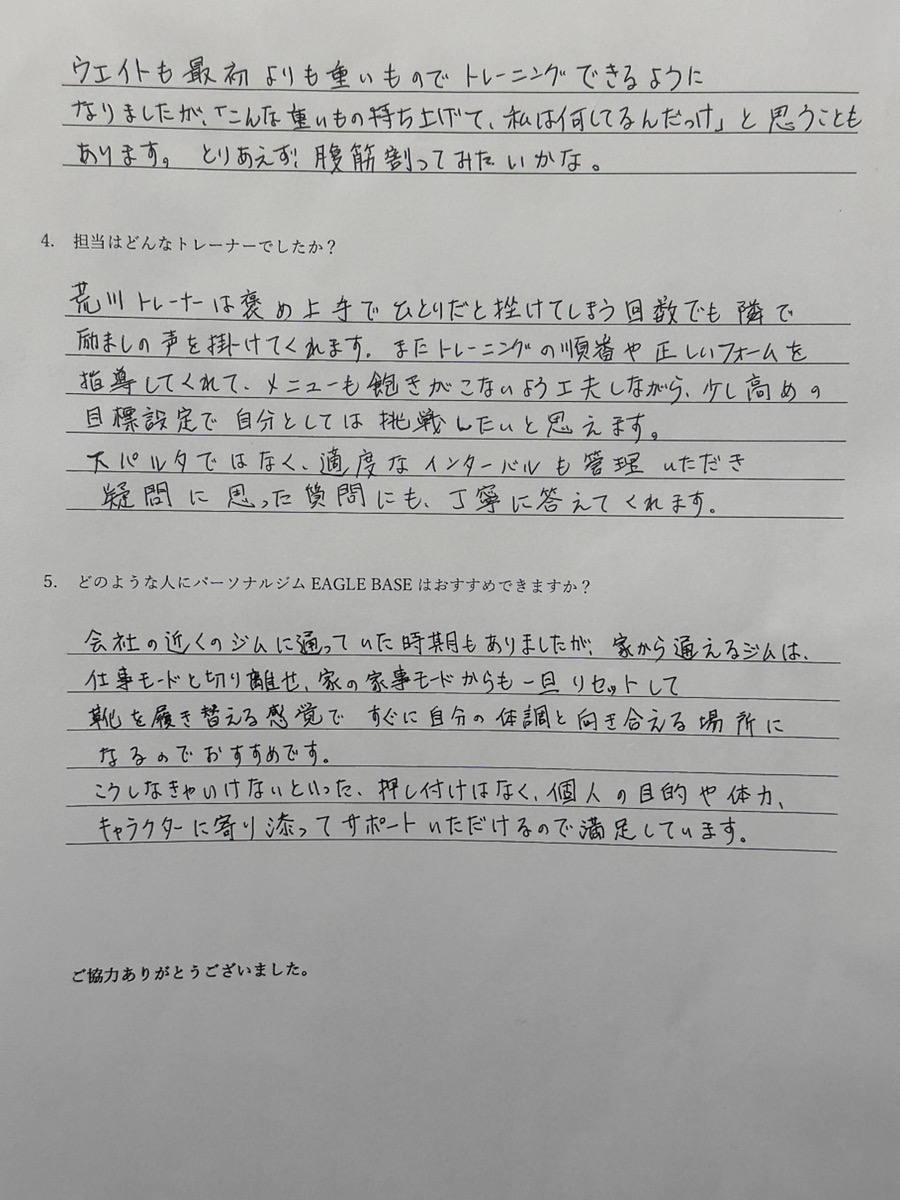 ウエイトも最初よりも重いものでトレーニングできるように
なりましたが、「こんな重いもの持ち上げて、私は何してるんだっけ」と思うことも
あります。とりあえず！腹筋割ってみたいかな。
4. 担当はどんなトレーナーでしたか？
荒川トレーナーは褒め上手でひとりだと挫けてしまう回数でも隣で
励ましの声を掛けてくれます。またトレーニングの順番や正しいフォームを
指導してくれて、メニューも飽きがこないよう工夫しながら、少し高めの
目標設定で自分としては挑戦したいと思えます。
スパルタではなく、適度なインターバルも管理いただき
疑問に思った質問にも、丁寧に答えてくれます。
5. どのような人にパーソナルジム EAGLE BASE はおすすめできますか？
会社の近くのジムに通っていた時期もありましたが、家から通えるジムは、
仕事モードと切り離せ、家の家事モードからも一旦リセットして
靴を履き替える感覚ですぐに自分の体調と向き合える場所に
なるのでおすすめです。
こうしなきゃいけないといった、押し付けはなく、個人の目的や体力、
キャラクターに寄り添ってサポートいただけるので満足しています。
ご協力ありがとうございました。